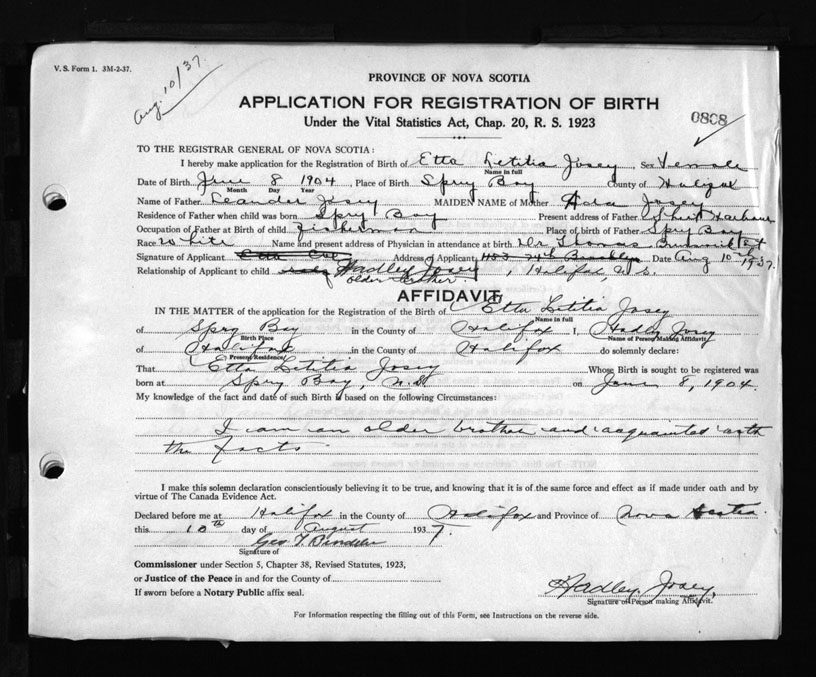 V. S. Form 1. 3M-2-37.
Aug. 10/37
PROVINCE OF NOVA SCOTIA
APPLICATION FOR REGISTRATION OF BIRTH
0808
Under the Vital Statistics Act, Chap. 20, R. S. 1923
TO THE REGISTRAR GENERAL OF NOVA SCOTIA:
I hereby make application for the Registration of Birth of Etta Letitia Josey, Sex Female
Name in full
Date of Birth June 8 1904, Place of Birth Spry Bay County of Halifax
Month Day Year
Name of Father Leander Josey MAIDEN NAME of Mother Ada Josey
Residence of Father when child was born Spry Bay Present address of Father Harbour
Occupation of Father at Birth of child fisherman Place of birth of Father Spry Bay
Race White Name and present address of Physician in attendance at birth Dr. Thomas Brunswick St
Signature of Applicant Etta Address of Applicant 403 74th Brooklyn Date Aug 10th 1937.
Relationship of Applicant to child Hadley Josey, Halifax N.S.
older brother.
AFFIDAVIT
IN THE MATTER of the application for the Registration of the Birth of Etta Letitia Josey
Name in full
of Spry Bay in the County of Halifax I, Hadley Josey
Birth Place Name of Person Making Affidavit
of Halifax in the County of Halifax do solemnly declare:
Present Residence
That Etta Letitia Josey Whose Birth is sought to be registered was
born at Spry Bay, N.S. on June 8, 1904.
My knowledge of the fact and date of such Birth is based on the following Circumstances:
I am an older brother and acquainted with
the facts
I make this solemn declaration conscientiously believing it to be true, and knowing that it is of the same force and effect as if made under oath and by
virtue of The Canada Evidence Act.
Declared before me at Halifax in the County of Halifax and Province of Nova Scotia.
this 10th day of August 1937.
Geo T.
Signature of
Commissioner under Section 5, Chapter 38, Revised Statutes, 1923,
or Justice of the Peace in and for the County of
If sworn before a Notary Public affix seal.
Hadley Josey,
Signature of Person making Affidavit.
For Information respecting the filling out of this Form, see Instructions on the reverse side.